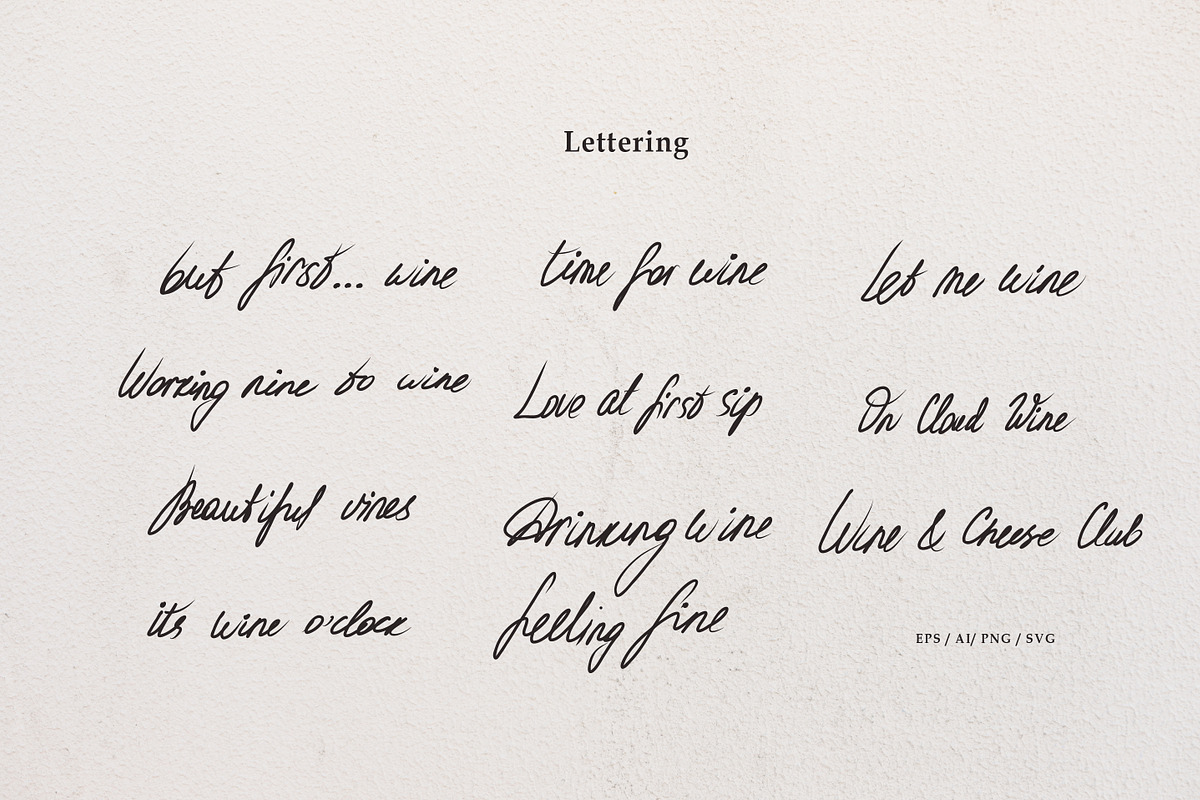 Lettering
but first... wine
time for wine
Let me wine
Working nine to wine
Love at first sip
On Cloud Wine
Beautiful vines
Drinking wine
feeling fine
Wine & Cheese Club
its wine o'clock
EPS / AI/ PNG / SVG